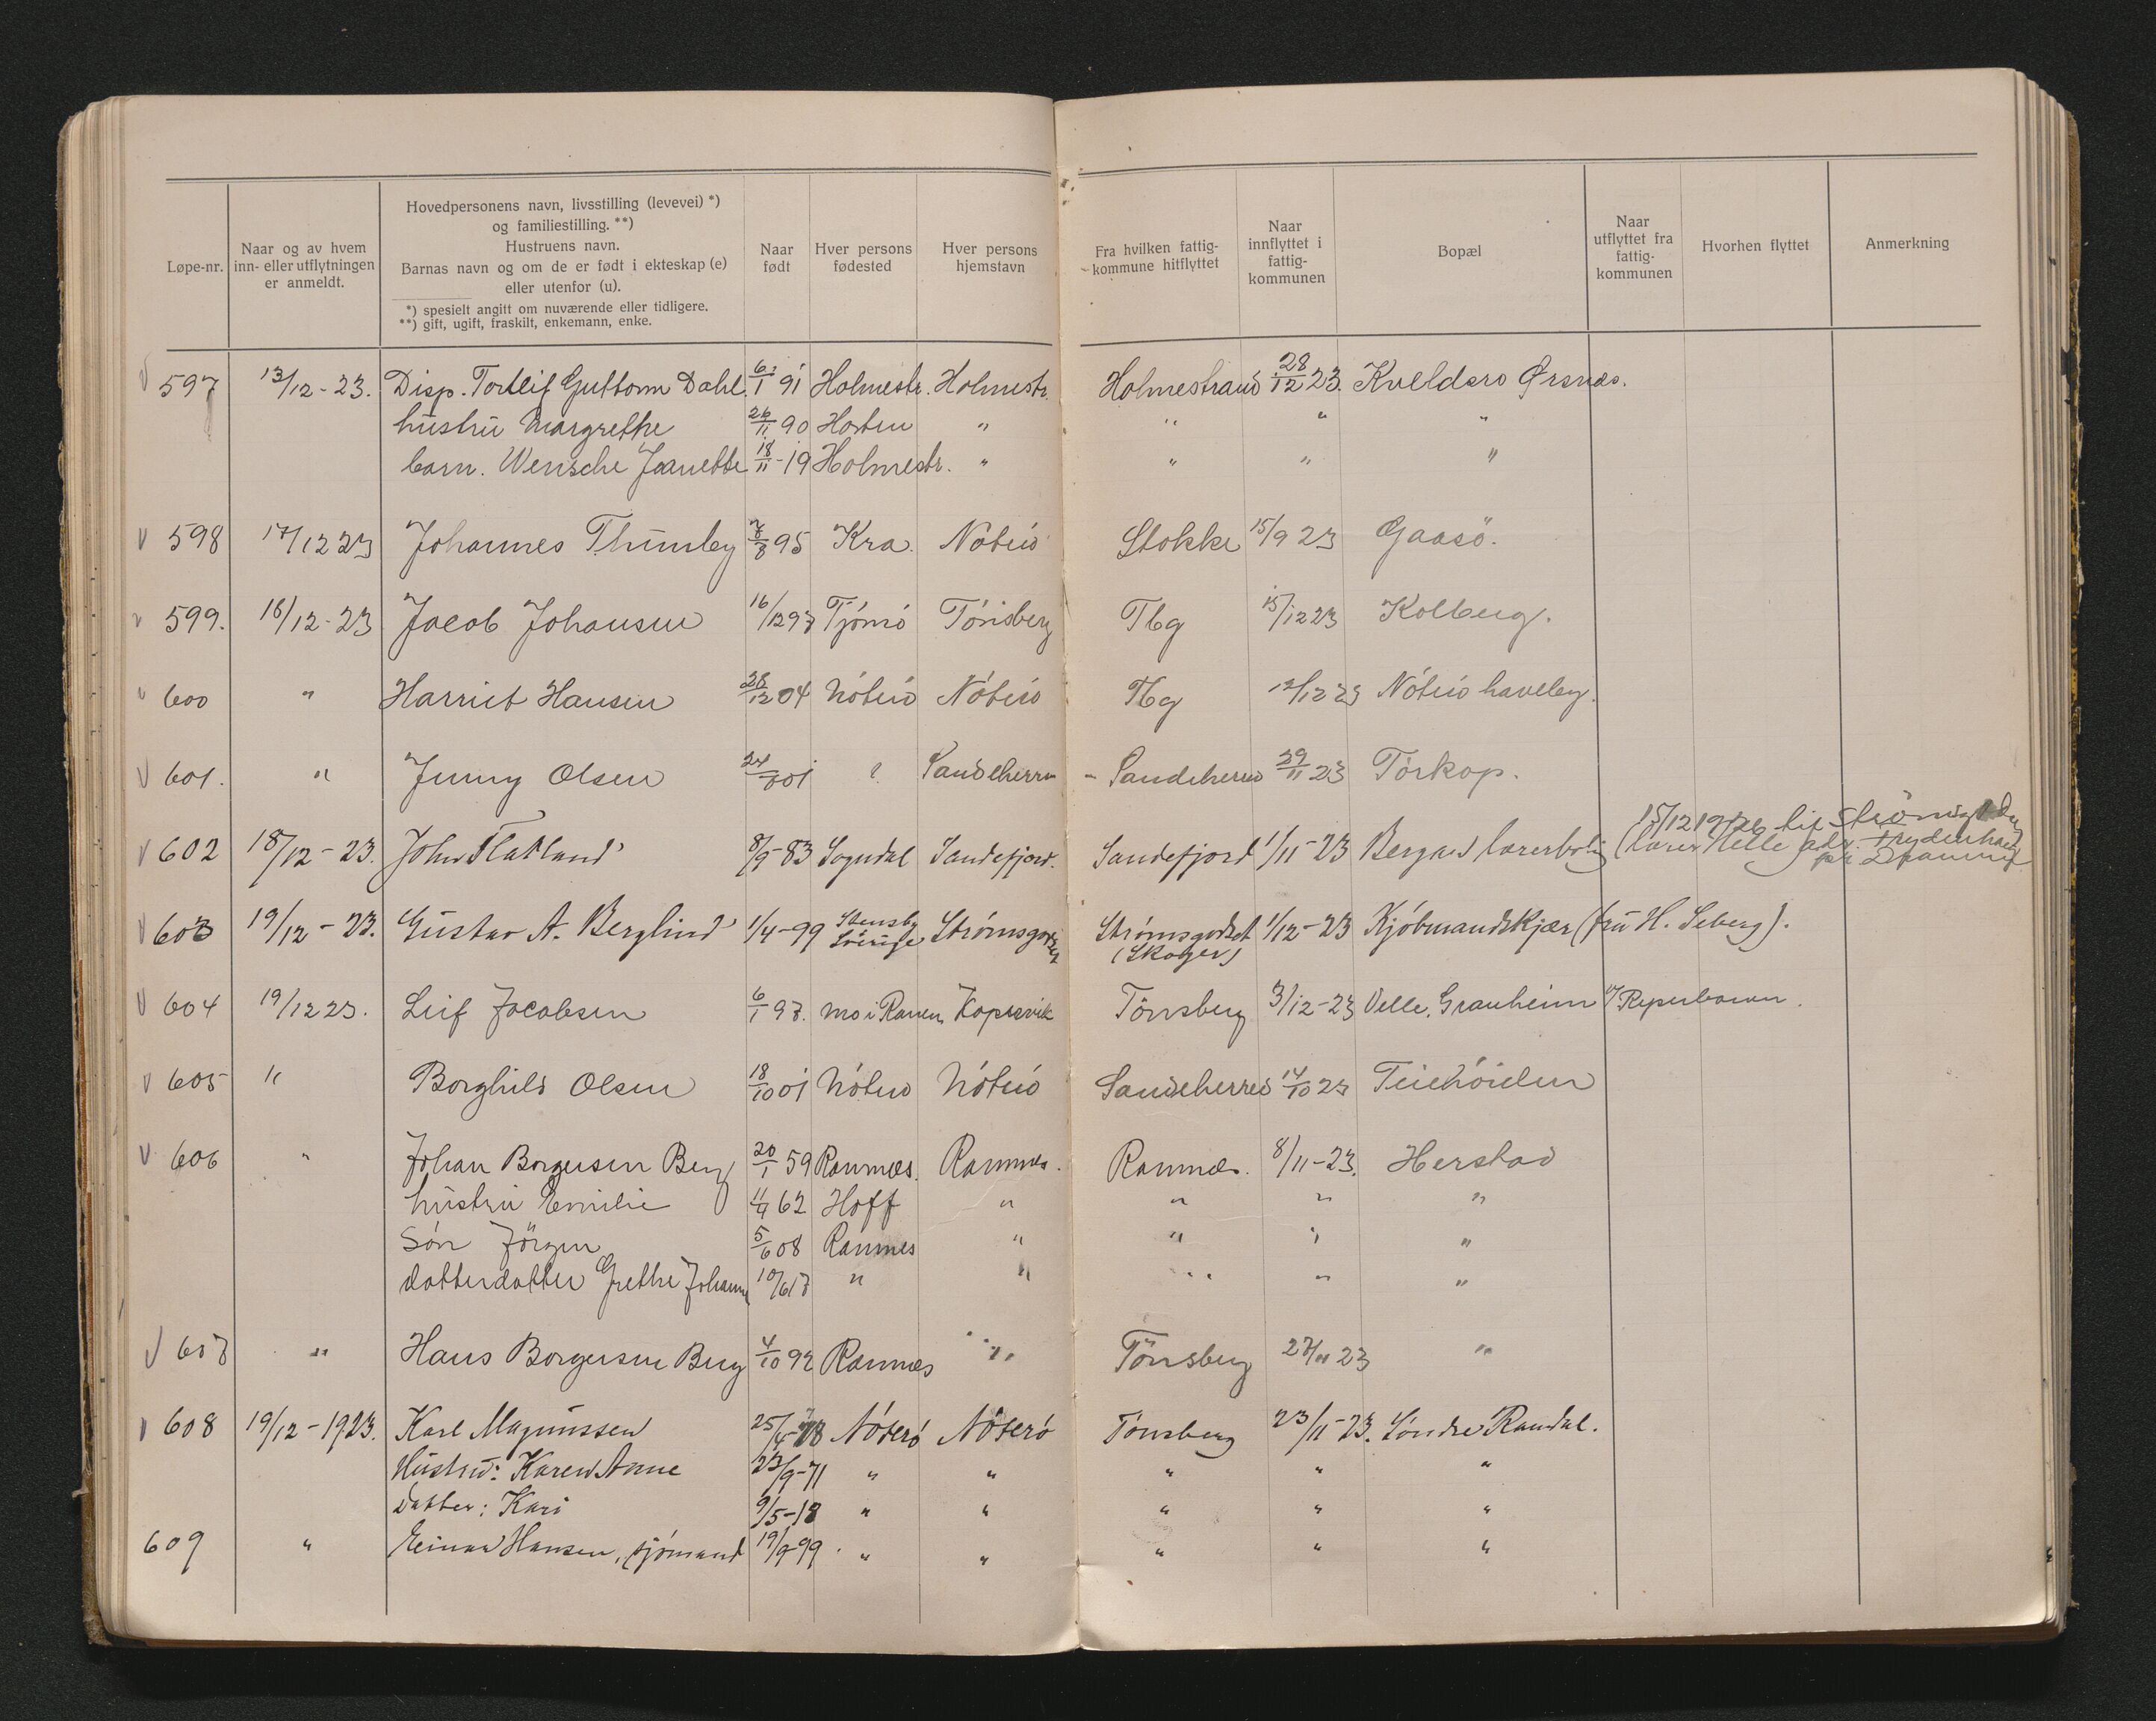 Løpe-nr.
Naar og av hvem
inn- eller utflytningen
er anmeldt.
Hovedpersonens navn, livsstilling (levevei) *)
og familiestilling. **)
Hustruens navn.
Barnas navn og om de er født i ekteskap (e)
eller utenfor (u).
*) spesielt angitt om nuværende eller tidligere.
**) gift, ugift, fraskilt, enkemann, enke.
Naar
født
Hver persons
fødested
Hver persons
hjemstavn
Fra hvilken fattig-
kommune hitflyttet
Naar
innflyttet i
fattig-
kommunen
Bopæl
Naar
utflyttet fra
fattig-
kommunen
Hvorhen flyttet
Anmerkning
597 13/12-23. Disp. Torleif Guttorm Dahl 6/1 91 Holmestr. Holmestr. Holmestrand 28/12 23. Kveldsro Ørsnes.
hustru Margrethe 26/11 90 Horten " " " "
barn. Wensche Jeanette 18/11-19 Holmestr. " " " "
598 17/12 23 Johannes Thumley 7/8 95 Kra. Nøterø Stokke 15/9 23 Gaasö.
599. 16/12-23 Jacob Johansen 16/12 97 Tjömö Tönsberg Tbg 15/12 23 Kolberg.
600 " Harriet Hansen 28/12 04 Nöterö Nöterö Tbg 12/12 23 Nöterö haveby.
601. " Jenny Olsen 24/7 01 ? Sandeherre - Sandeherred 29/11 23 Torkop.
602 18/12-23. John Flatland 8/9-83 Sogndal Sandefjord. Sandefjord 1/11-23 Bergan lærerbolig (lærer Helle
603 19/12-23. Gustav A. Berglind 1/4-99 Stensby Sverige Strömsgodset Strömsgodset (Skoger) 1/12-23 Kjöbmandskjær (fru H. Seberg).
604 19/12 23. Leif Jacobsen 6/1 97. Mo i Ranen Kopervik Tönsberg 3/12-23 Velle, Granheim v/ Reperbanen.
605 " Borghild Olsen 18/10 01 Nöterö Nöterö Sandeherred 14/10 23 Teiehöiden
606 " Johan Borgersen Berg 20/1 59 Ramnæs. Ramnæs. Ramnæs. 8/11-23. Herstad
hustru Emilie 11/9 62 Hoff " " " "
Sön Jörgen 5/6 08 Ramnes " " " "
datterdatter Grethe Johanne 10/6 17 " " " " "
607 " Hans Borgersen Berg 4/10 92 Ramnæs " Tönsberg 27/11 23 "
608 19/12-1923. Karl Magnussen 25/4-78 Nöterö Nöterö Tönsberg 23/11-23. Söndre Ramdal.
Hustru: Karen Anne 23/9-71 " " " " "
Datter: Kari 9/5-18 " " " " "
609 " Einar Hansen, sjömand 19/9-99 " " " " "